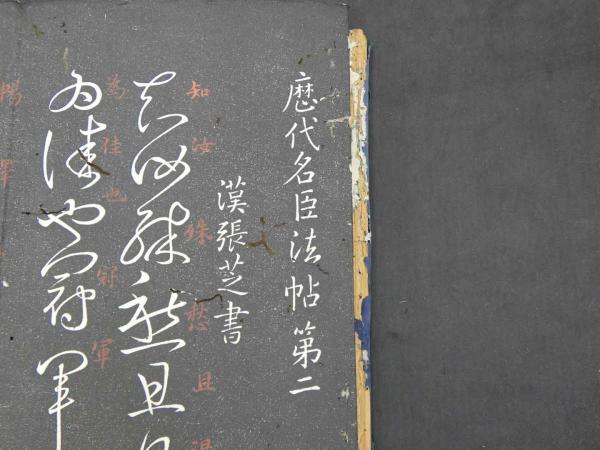 歴代名臣法帖第二
漢張芝書
知汝殊愁且
知汝殊愁且
為佳也冠軍
為佳也冠軍